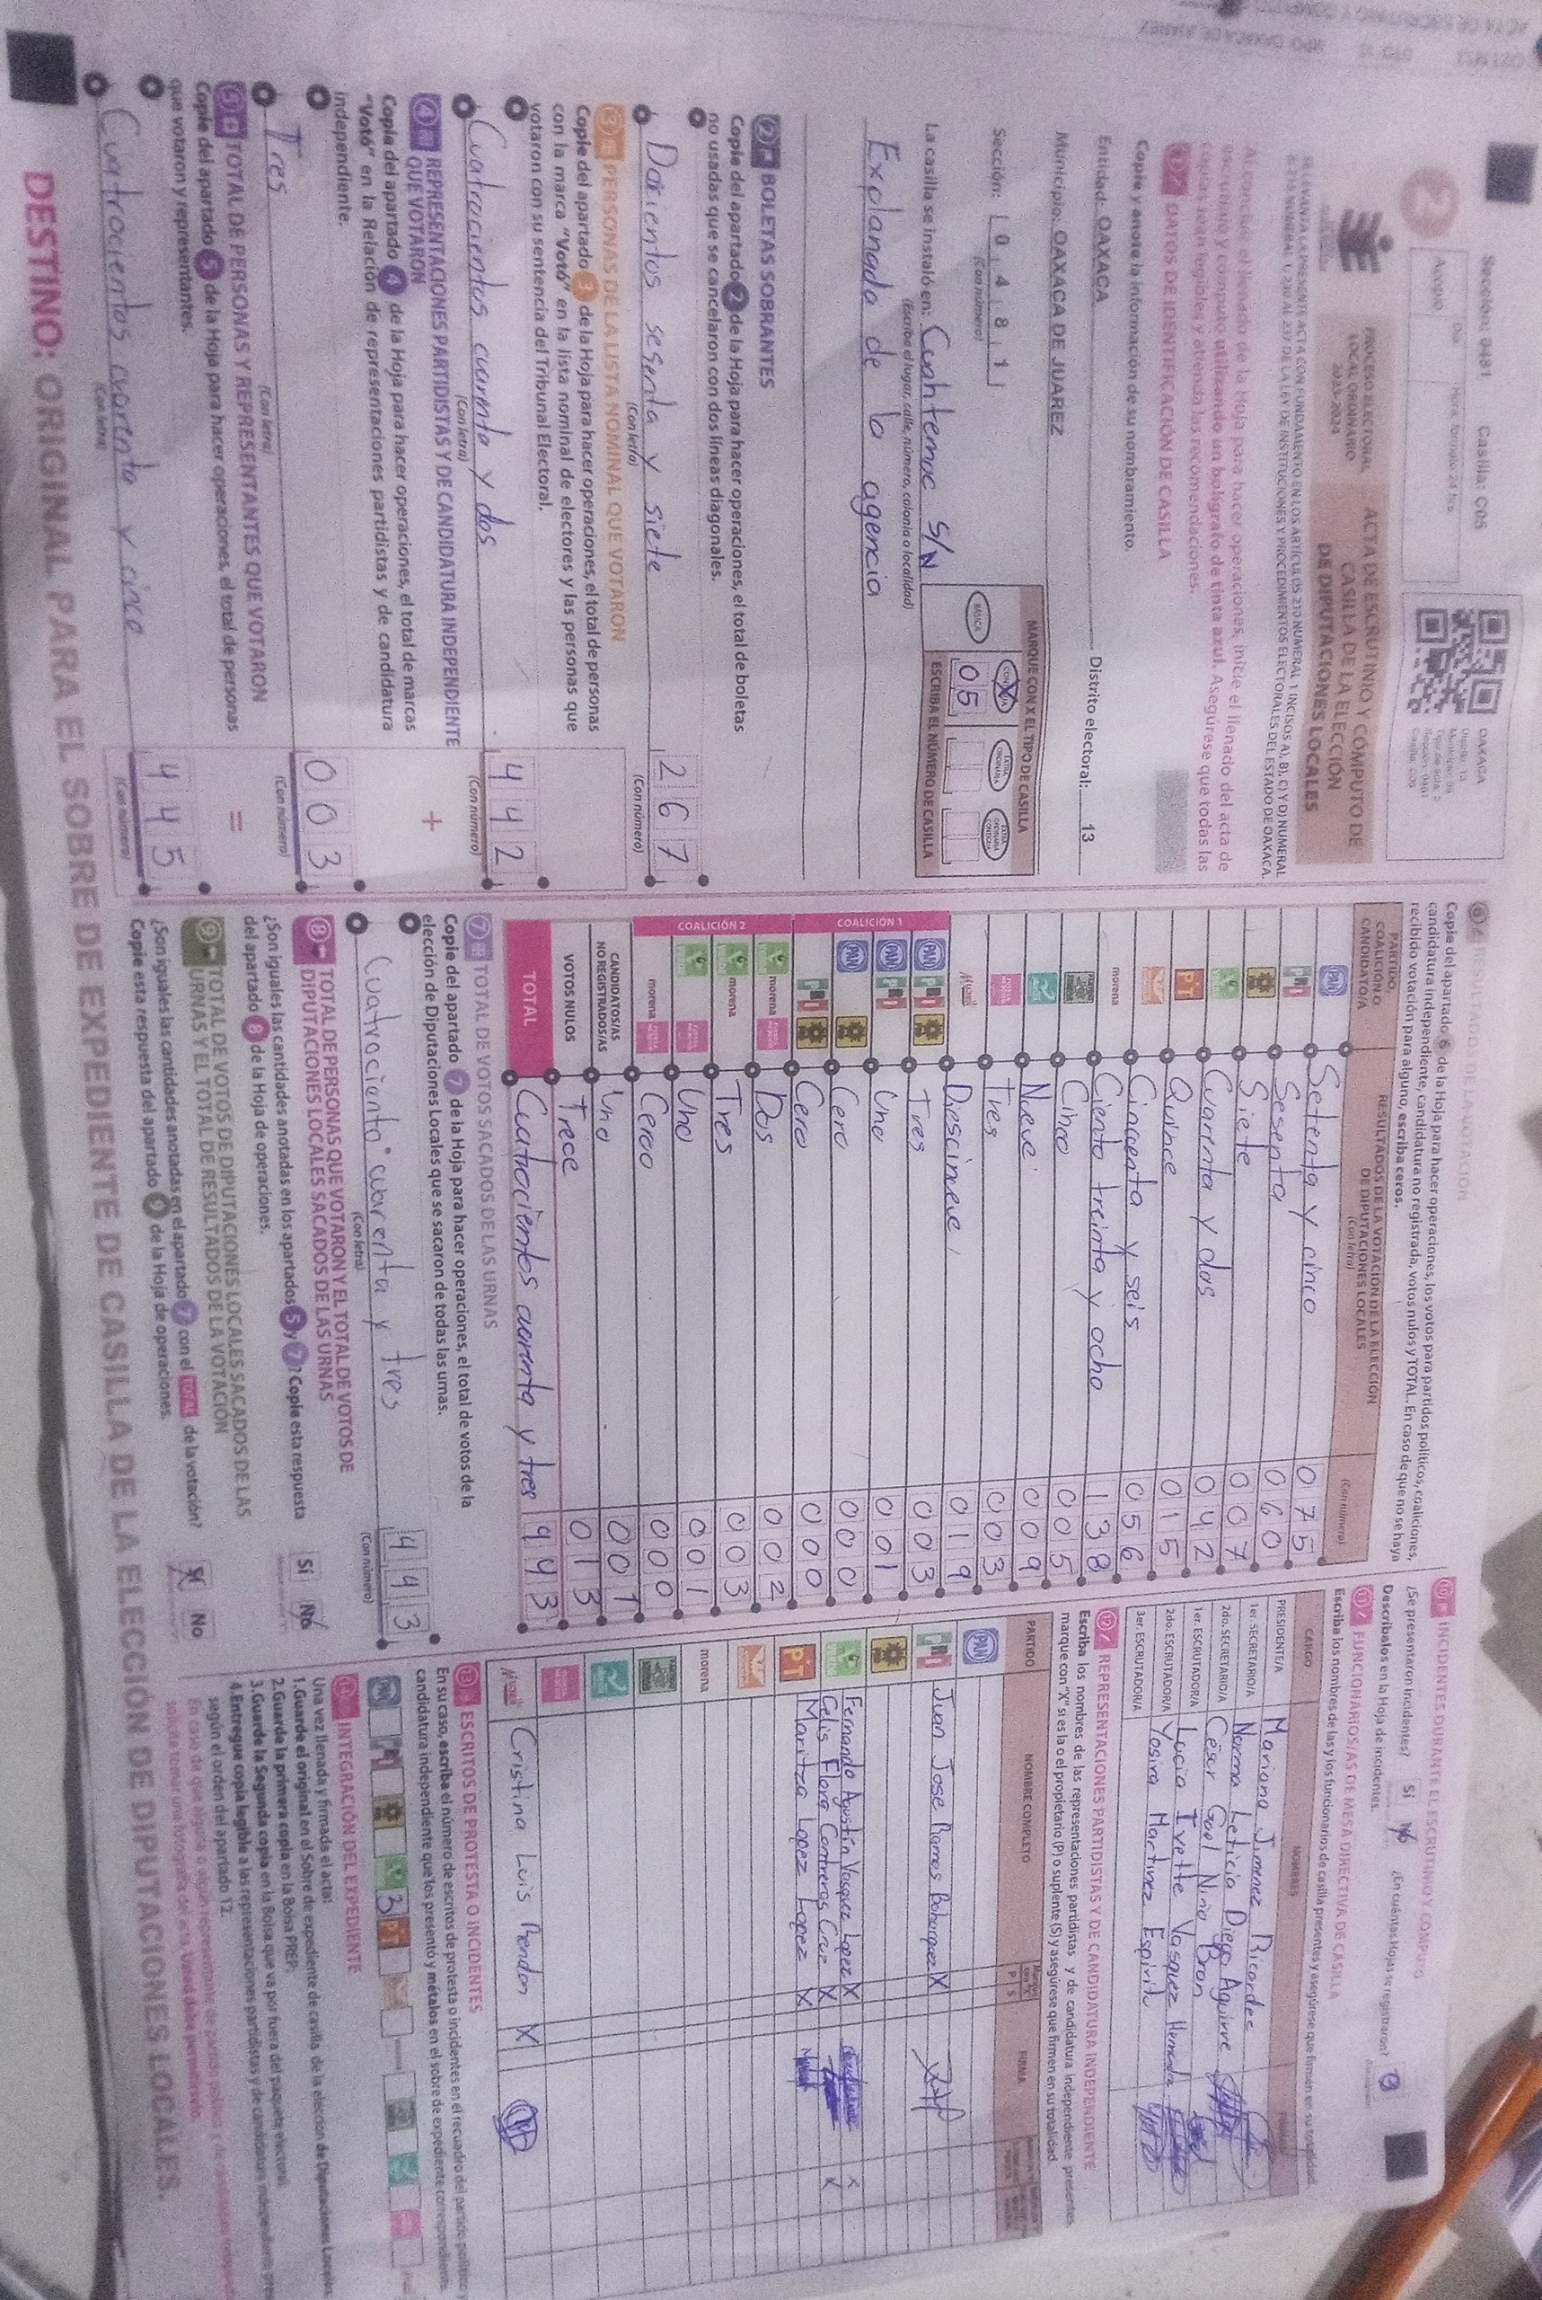 Sección: 0481 Casilla: C05
2
Acopio
OAXACA
PROCESO ELECTORAL
LOCAL ORDINARIO
2023-2024
ACTA DE ESCRUTINIO Y CÓMPUTO DE
CASILLA DE LA ELECCIÓN
DE DIPUTACIONES LOCALES
Al concluir el llenado de la Hoja para hacer operaciones, inicie el llenado del acta de
escrutinio y cómputo utilizando un bolígrafo de tinta azul. Asegúrese que todas las
copias sean legibles y atienda las recomendaciones.
1 DATOS DE IDENTIFICACIÓN DE CASILLA
Copie y anote la información de su nombramiento.
Entidad: OAXACA Distrito electoral: 13
Municipio: OAXACA DE JUAREZ
Sección: 0 4 8 1
(Con número)
MARQUE CON X EL TIPO DE CASILLA
BÁSICA
ESCRIBA EL NÚMERO DE CASILLA
05
La casilla se instaló en: Cuahtemoc S/N
(Escriba el lugar, calle, número, colonia o localidad)
Explanada de la agencia
2 BOLETAS SOBRANTES
Copie del apartado 2 de la Hoja para hacer operaciones, el total de boletas
no usadas que se cancelaron con dos líneas diagonales.
Docientos sesenta y siete 267
(Con letra) (Con número)
3 PERSONAS DE LA LISTA NOMINAL QUE VOTARON
Copie del apartado 3 de la Hoja para hacer operaciones, el total de personas
con la marca “Votó” en la lista nominal de electores y las personas que
votaron con su sentencia del Tribunal Electoral.
Cuatrocientos cuarenta y dos 442
(Con letra) (Con número)
4 REPRESENTACIONES PARTIDISTAS Y DE CANDIDATURA INDEPENDIENTE
QUE VOTARON +
Copie del apartado 4 de la Hoja para hacer operaciones, el total de marcas
“Votó” en la Relación de representaciones partidistas y de candidatura
independiente.
Tres 003
(Con letra) (Con número)
5 TOTAL DE PERSONAS Y REPRESENTANTES QUE VOTARON =
Copie del apartado 5 de la Hoja para hacer operaciones, el total de personas
que votaron y representantes.
Cuatrocientos cuarenta y cinco 445
(Con letra) (Con número)
6 RESULTADOS DE LA VOTACIÓN
Copie del apartado 6 de la Hoja para hacer operaciones, los votos para partidos políticos, coaliciones,
candidatura independiente, candidatura no registrada, votos nulos y TOTAL. En caso de que no se haya
recibido votación para alguno, escriba ceros.
PARTIDO,
COALICIÓN O
CANDIDATO/A
RESULTADOS DE LA VOTACIÓN DE LA ELECCIÓN
DE DIPUTACIONES LOCALES
(Con letra)
(Con número)
PAN Setenta y cinco 075
PRI Sesenta 060
Siete 007
Cuarenta y dos 042
PT Quince 015
Cincuenta y seis 056
morena Ciento treinta y ocho 138
Cinco 005
Nueve 009
Tres 003
Diescinueve 019
COALICIÓN 1
PAN PRI Tres 003
PAN PRI Uno 001
PAN Cero 000
PRI Cero 000
COALICIÓN 2
morena Dos 002
morena Tres 003
Uno 001
morena Cero 000
CANDIDATOS/AS
NO REGISTRADOS/AS Uno 001
VOTOS NULOS Trece 013
TOTAL Cuatrocientos cuarenta y tres 443
7 TOTAL DE VOTOS SACADOS DE LAS URNAS
Copie del apartado 7 de la Hoja para hacer operaciones, el total de votos de la
elección de Diputaciones Locales que se sacaron de todas las urnas.
Cuatrociento cuarenta y tres 443
(Con letra) (Con número)
8 TOTAL DE PERSONAS QUE VOTARON Y EL TOTAL DE VOTOS DE
DIPUTACIONES LOCALES SACADOS DE LAS URNAS
¿Son iguales las cantidades anotadas en los apartados 5 y 7? Copie esta respuesta
del apartado 8 de la Hoja de operaciones.
Sí No
9 TOTAL DE VOTOS DE DIPUTACIONES LOCALES SACADOS DE LAS
URNAS Y EL TOTAL DE RESULTADOS DE LA VOTACIÓN
¿Son iguales las cantidades anotadas en el apartado 7 con el TOTAL de la votación?
Copie esta respuesta del apartado 9 de la Hoja de operaciones.
Sí No
10 INCIDENTES DURANTE EL ESCRUTINIO Y CÓMPUTO
¿Se presentaron incidentes? Sí No ¿En cuántas Hojas se registraron? 0
Descríbalos en la Hoja de incidentes.
11 FUNCIONARIOS/AS DE MESA DIRECTIVA DE CASILLA
Escriba los nombres de las y los funcionarios de casilla presentes y asegúrese que firmen en su totalidad.
CARGO NOMBRES
PRESIDENTE/A Mariana Jimenez Ricardez
1er. SECRETARIO/A Norma Leticia Diego Aguirre
2do. SECRETARIO/A César Gael Niño Bran
1er. ESCRUTADOR/A Lucia Ivette Vasquez
2do. ESCRUTADOR/A Yosira Martinez Espiritu
3er. ESCRUTADOR/A
12 REPRESENTACIONES PARTIDISTAS Y DE CANDIDATURA INDEPENDIENTE
Escriba los nombres de las representaciones partidistas y de candidatura independiente presentes,
marque con “X” si es la o el propietario (P) o suplente (S) y asegúrese que firmen en su totalidad.
PARTIDO NOMBRE COMPLETO P S FIRMA
PAN
PRI Juan Jose Ramos Bohorquez X
Fernando Agustín Vasquez Lopez X
Celis Flora Contreras Cruz X
PT Maritza Lopez Lopez X
morena
Cristina Luis Rendon X
13 ESCRITOS DE PROTESTA O INCIDENTES
En su caso, escriba el número de escritos de protesta o incidentes en el recuadro del partido político y
candidatura independiente que los presentó y métalos en el sobre de expediente correspondiente.
PAN PRI 3 PT
14 INTEGRACIÓN DEL EXPEDIENTE
Una vez llenada y firmada el acta:
1.Guarde el original en el Sobre de expediente de casilla de la elección de Diputaciones Locales.
2.Guarde la primera copia en la Bolsa PREP.
3.Guarde la Segunda copia en la Bolsa que va por fuera del paquete electoral.
4.Entregue copia legible a las representaciones partidistas y de candidatura independiente
según el orden del apartado 12.
DESTINO: ORIGINAL PARA EL SOBRE DE EXPEDIENTE DE CASILLA DE LA ELECCIÓN DE DIPUTACIONES LOCALES.